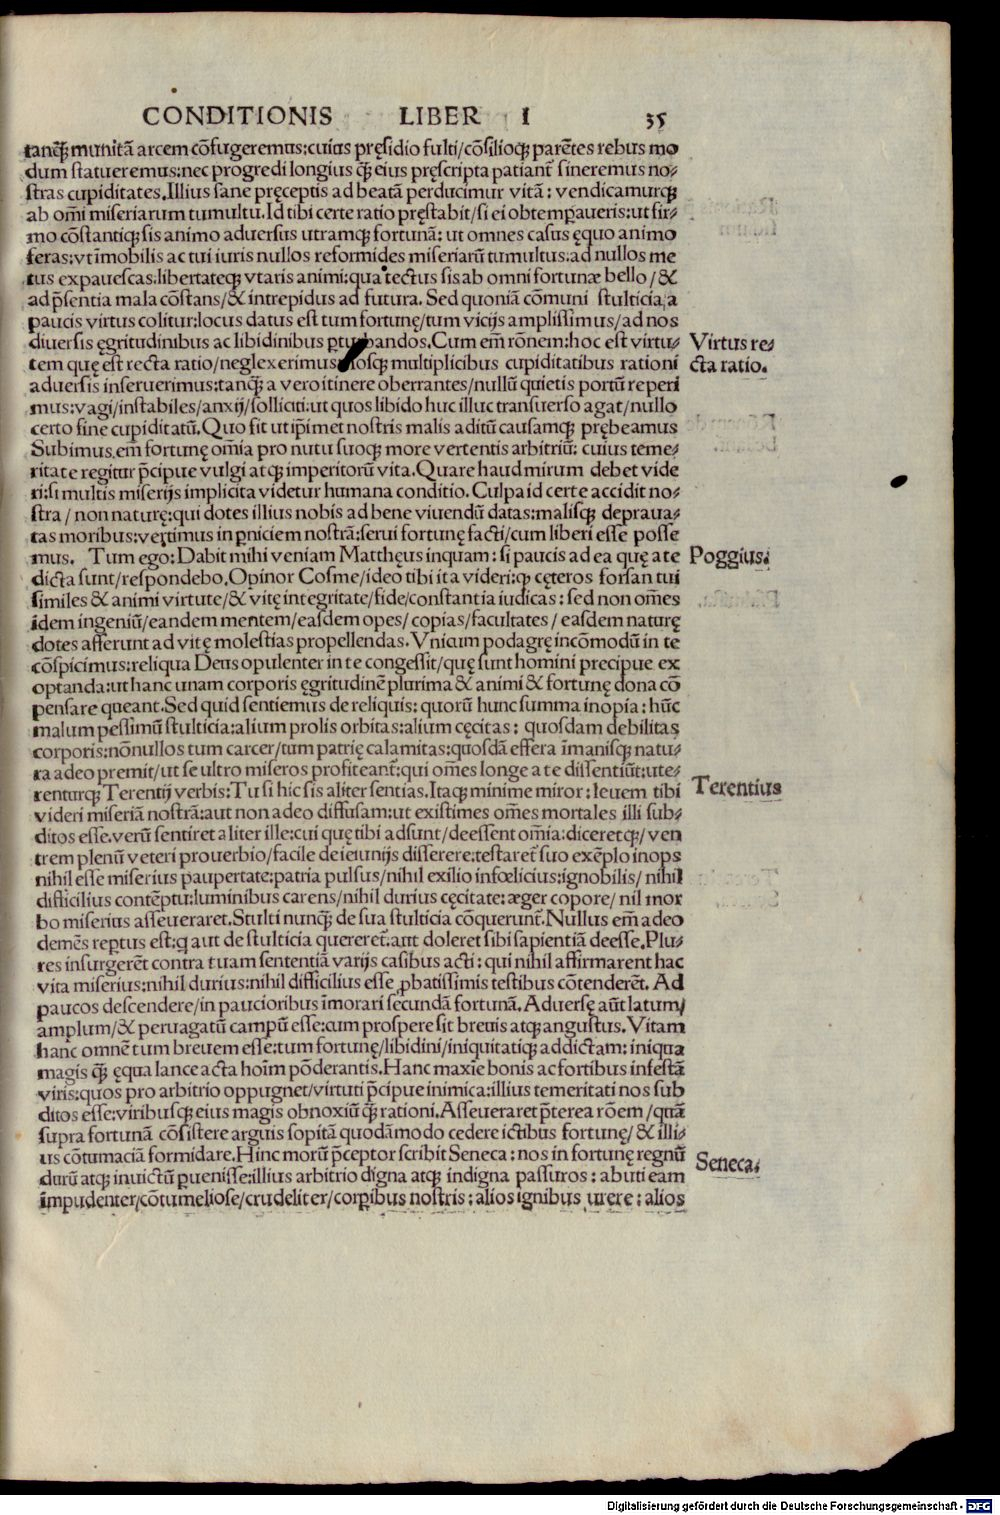 CONDITIONIS LIBER I 35
tanq̃ munitã arcem cõfugeremus:cuius pręsidio fulti/cõsilioqꝫ parẽtes rebus mo
dum statueremus:nec progredi longius q̃ eius pręscripta patiant̃ sineremus no⸗
stras cupiditates.Illius sane pręceptis ad beatã perducimur vitã: vendicamurqꝫ
ab om̃i miseriarum tumultu.Id tibi certe ratio pręstabit/si ei obtemꝑaueris:ut fir⸗
mo cõstantiqꝫ sis animo aduersus utramqꝫ fortunã: ut omnes casus ęquo animo
feras:vt ĩmobilis ac tui iuris nullos reformides miseriarũ tumultus:ad nullos me
tus expauescas:libertateqꝫ vtaris animi:qua tectus sis ab omni fortunæ bello/&
ad p̃sentia mala cõstans/& intrepidus ad futura. Sed quoniã cõmuni stulticia a
paucis virtus colitur:locus datus est tum fortunę/tum vicijs amplissimus/ad nos
diuersis ęgritudinibus ac libidinibus ꝑturbandos.Cum em̃ rõnem:hoc est virtu⸗
tem quę est recta ratio/neglexerimus nosqꝫ multiplicibus cupiditatibus rationi
aduersis inseruerimus:tanq̃ a vero itinere oberrantes/nullũ quietis portũ reperi
mus:vagi/instabiles/anxij/solliciti:ut quos libido huc illuc transuerso agat/nullo
certo fine cupiditatũ.Quo fit ut ip̃imet nostris malis aditũ causamqꝫ prębeamus
Subimus em̃ fortunę om̃ia pro nutu suoqꝫ more vertentis arbitriũ: cuius teme⸗
ritate regitur p̃cipue vulgi atqꝫ imperitorũ vita.Quare haud mirum debet vide
ri:si multis miserijs implicita videtur humana conditio.Culpa id certe accidit no⸗
stra/non naturę:qui dotes illius nobis ad bene viuendũ datas:malisqꝫ depraua⸗
tas moribus:vertimus in ꝑniciem nostrã:serui fortunę facti/cum liberi esse posse
mus. Tum ego:Dabit mihi veniam Matthęus inquam: si paucis ad ea quę a te
dicta sunt/respondebo.Opinor Cosme/ideo tibi ita videri:qꝫ cęteros forsan tui
similes & animi virtute/& vitę integritate/fide/constantia iudicas:sed non om̃es
idem ingeniũ/eandem mentem/easdem opes/copias/facultates/easdem naturę
dotes afferunt ad vitę molestias propellendas.Vnicum podagrę incõmodũ in te
cõspicimus:reliqua Deus opulenter in te congessit/quę sunt homini precipue ex
optanda:ut hanc unam corporis ęgritudinẽ plurima & animi & fortunę dona cõ
pensare queant.Sed quid sentiemus de reliquis: quorũ hunc summa inopia: hũc
malum pessimũ stulticia:alium prolis orbitas:alium cęcitas: quosdam debilitas
corporis:nõnullos tum carcer/tum patrię calamitas:quosdã effera ĩmanisqꝫ natu⸗
ra adeo premit/ut se ultro miseros profiteant̃:qui om̃es longe a te dissentiũt:ute⸗
renturqꝫ Terentij verbis:Tu si hic sis aliter sentias.Itaqꝫ minime miror:leuem tibi
videri miseriã nostrã:aut non adeo diffusam:ut existimes om̃es mortales illi sub⸗
ditos esse.verũ sentiret aliter ille:cui quę tibi adsunt/deessent om̃ia:diceretqꝫ/ven
trem plenũ veteri prouerbio/facile de ieiunijs disserere:testaret̃ suo exẽplo inops
nihil esse miserius paupertate:patria pulsus/nihil exilio infœlicius:ignobilis/nihil
difficilius contẽptu:luminibus carens/nihil durius cęcitate:æger copore/nil mor
bo miserius asseueraret.Stulti nunq̃ de sua stulticia cõquerunt̃.Nullus em̃ adeo
demẽs reptus est:q aut de stulticia quereret̃:aut doleret sibi sapientiã deesse.Plu⸗
res insurgerẽt contra tuam sententiã varijs casibus acti: qui nihil affirmarent hac
vita miserius:nihil durius:nihil difficilius esse ꝓbatissimis testibus cõtenderẽt. Ad
paucos descendere/in paucioribus ĩmorari secundã fortunã.Aduersę aũt latum/
amplum/& peruagatũ campũ esse:cum prospere sit breuis atqꝫ angustus.Vitam
hanc omnẽ tum breuem esse:tum fortunę/libidini/iniquitatiqꝫ addictam: iniqua
magis q̃ ęqua lance acta hoĩm põderantis.Hanc maxĩe bonis ac fortibus infestã
viris:quos pro arbitrio oppugnet/virtuti p̃cipue inimica:illius temeritati nos sub
ditos esse:viribusqꝫ eius magis obnoxiũ q̃ rationi.Asseueraret p̃terea rõem/quã
supra fortunã cõsistere arguis sopitã quodãmodo cedere ictibus fortunę/& illi⸗
us cõtumaciã formidare.Hinc morũ p̃ceptor scribit Seneca: nos in fortunę regnũ
durũ atqꝫ inuictũ ꝑuenisse:illius arbitrio digna atqꝫ indigna passuros: abuti eam
ĩmpudenter/cõtumeliose/crudeliter/corꝑibus nostris: alios ignibus urere: alios
Virtus re⸗
cta ratio.
Poggius.
Terentius
Seneca.
Digitalisierung gefördert durch die Deutsche Forschungsgemeinschaft - DFG